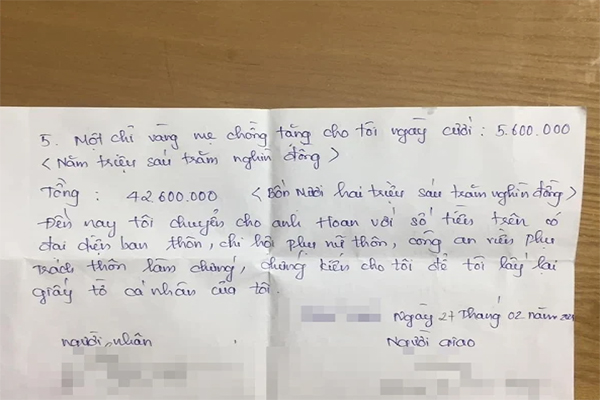 5. Một chỉ vàng mẹ chồng tặng cho tôi ngày cưới : 5.600.000
< Năm triệu sáu trăm nghìn đồng >
Tổng : 42.600.000 < Bốn mươi hai triệu sáu trăm nghìn đồng >
Đến nay tôi chuyển cho anh Hoan với số tiền trên có
đại diện ban thôn, chi hội phụ nữ thôn, công an viên phụ
trách thôn làm chứng, chứng kiến cho tôi để tôi lấy lại
giấy tờ cá nhân của tôi.
Ngày 27 Tháng 02 năm
người nhận
Người giao